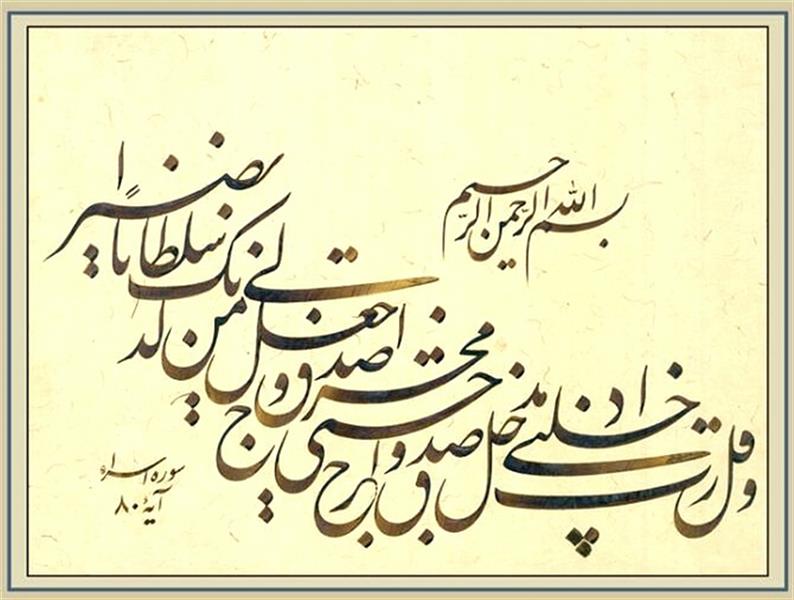 بسم الله الرحمن الرحیم
و قل رب ادخلنی مدخل صدق و اخرجنی مخرج صدق و اجعل لی من لدنک سلطاناً نصیرا
سوره اسراء
آیهٔ ۸۰